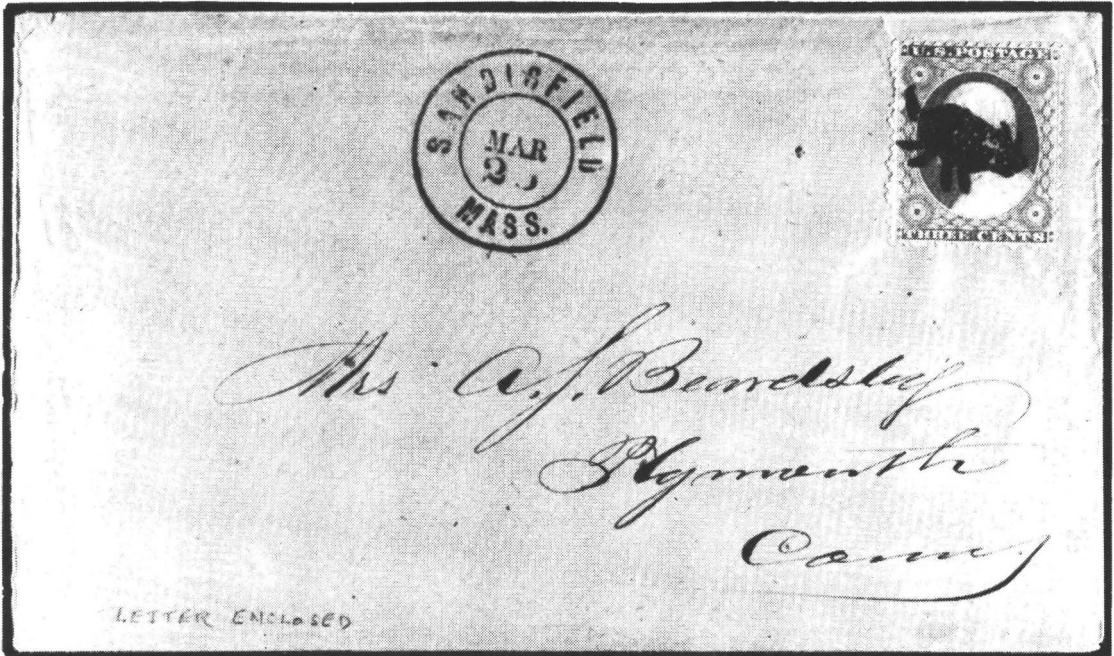 SANDISFIELD
MAR
MASS.
U.S. POSTAGE
THREE CENTS
Mrs A. J. Beardsley
Plymouth
Conn.
LETTER ENCLOSED